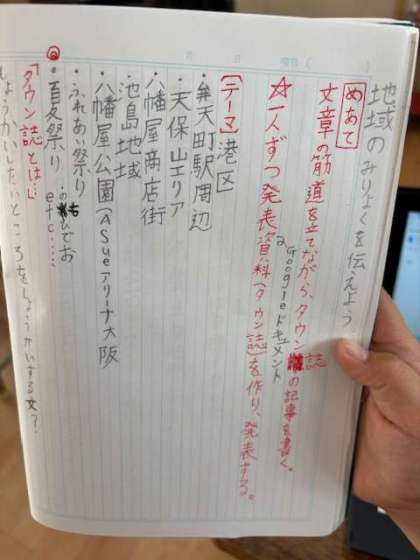 地域のみりょくを伝えよう
めあて
文章の筋道を立てながら、タウン誌の記事を書く。
Googleドキュメント
☆一人ずつ発表資料(タウン誌)を作り、発表する。
【テーマ】港区
・弁天町駅周辺
・天保山エリア
・八幡屋商店街
・池島地域
・八幡屋公園(Asueアリーナ大阪
・ふれあい祭り
・夏祭り
etc.....
「タウン誌とは…」
しょうかいしたいところをしょうかいする文？